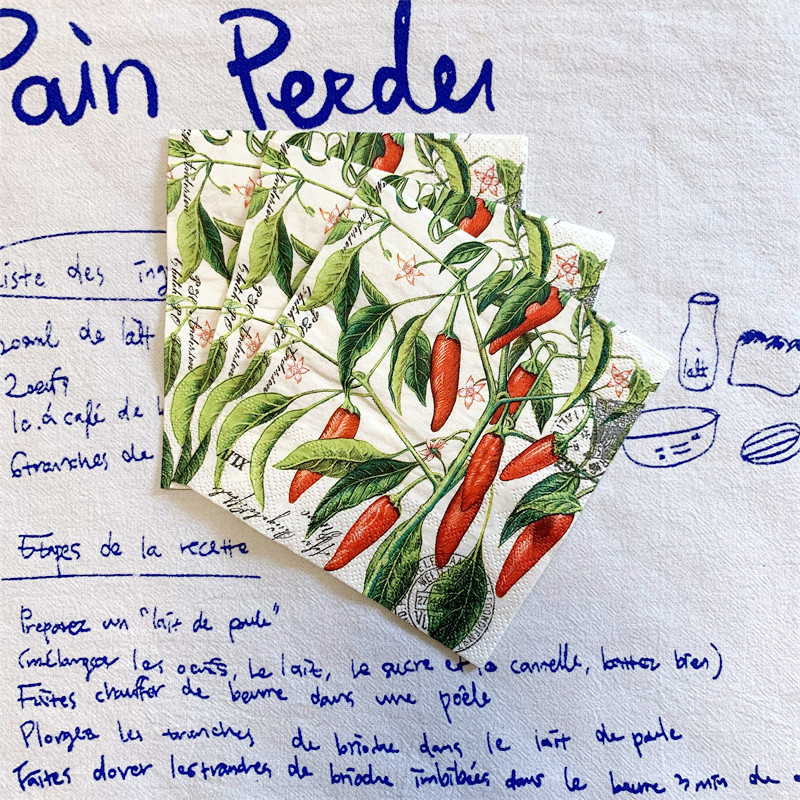 Pain Perdu
Liste des ing
200ml de lait
2 oeufs
1c.à café de
6 tranches de
lait
XLIV
Etapes de la recette
Preparez un "lait de poule"
(mélanger les oeufs, le lait, le sucre et la cannelle, battez bien)
Faites chauffer de beurre dans une poêle
Plongez les tranches de brioche dans le lait de poule
Faites dorer les tranches de brioche imbibées dans le beurre 3 min du